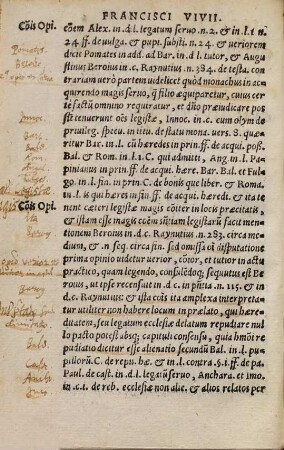 FRANCISCI VIVII.
Cõis Opi. cõem Alex. in .d.l. legatum seruo .n.2. & in l.1 n.
24 .ff. de vulga. & pupi. substi. n. 24. & veriorem
dicit Pomates in add. ad Bar. in d l. tutor, & Augu
stinus Beroius in c. Raynutius n. 384. de testa. con
trariam uerò partem videlicet quòd monachus in ac
quirendo magis seruo, q̃ filio æquiparetur, cuius cer
tè factũ omnino requiratur, et dño præiudicare pos
sit tenuerunt oẽs legistæ, Innoc. in c. cum olym de
priuileg. spec. in titu. de statu mona. vers. 8. quæri
tur Bar. in l. cũ hæredes in prin ff. de acqui. poss.
Bal. & Rom. in l.1. C. qui admitti, Ang. in l. Pa
pinianus in prin ff. de acqui. hære. Bar. Bal. et Fulgo.
in d.l. fin. in prin C. de bonis que liber. & Roma.
in l. is qui hæres in fin ff. de acqui. hæredi. & ita te
Cõis Opi. nent cæteri legistæ magis cõiter in locis præcitatis,
& istam esse magis cõem sniam legistarũ facit menti
onem Beroius in d. c. Raynutius n. 283. circa me
dium, & n seq. circa fin. sed omissa cõi disputatione
prima opinio videtur verior, cõior, et tutior in actu
practico, quam legendo, consulẽdoq; sequutus est Be
roius, ut ipse recenset in d. c. in pñtia n. 115. & in
d c. Raynutius: & ista cõis ita amplexa interpreta
tur utiliter non habere locum in prælato, qui hære
ditatem, seu legatum ecclesiæ delatum repudiare nul
lo pacto potest absq; capituli consensu, quia hmõi re
pudiatio dicitur esse alienatio secundũ Bal. in l. pu
pillorũ C. de repu. hæ. & in l. contra .§.1 ff. de pa.
Paul. de cast. in d.l. legatũ seruo, Anchara. et Imo.
in .c.1. de reb. ecclesiæ non alie. & alios relatos per